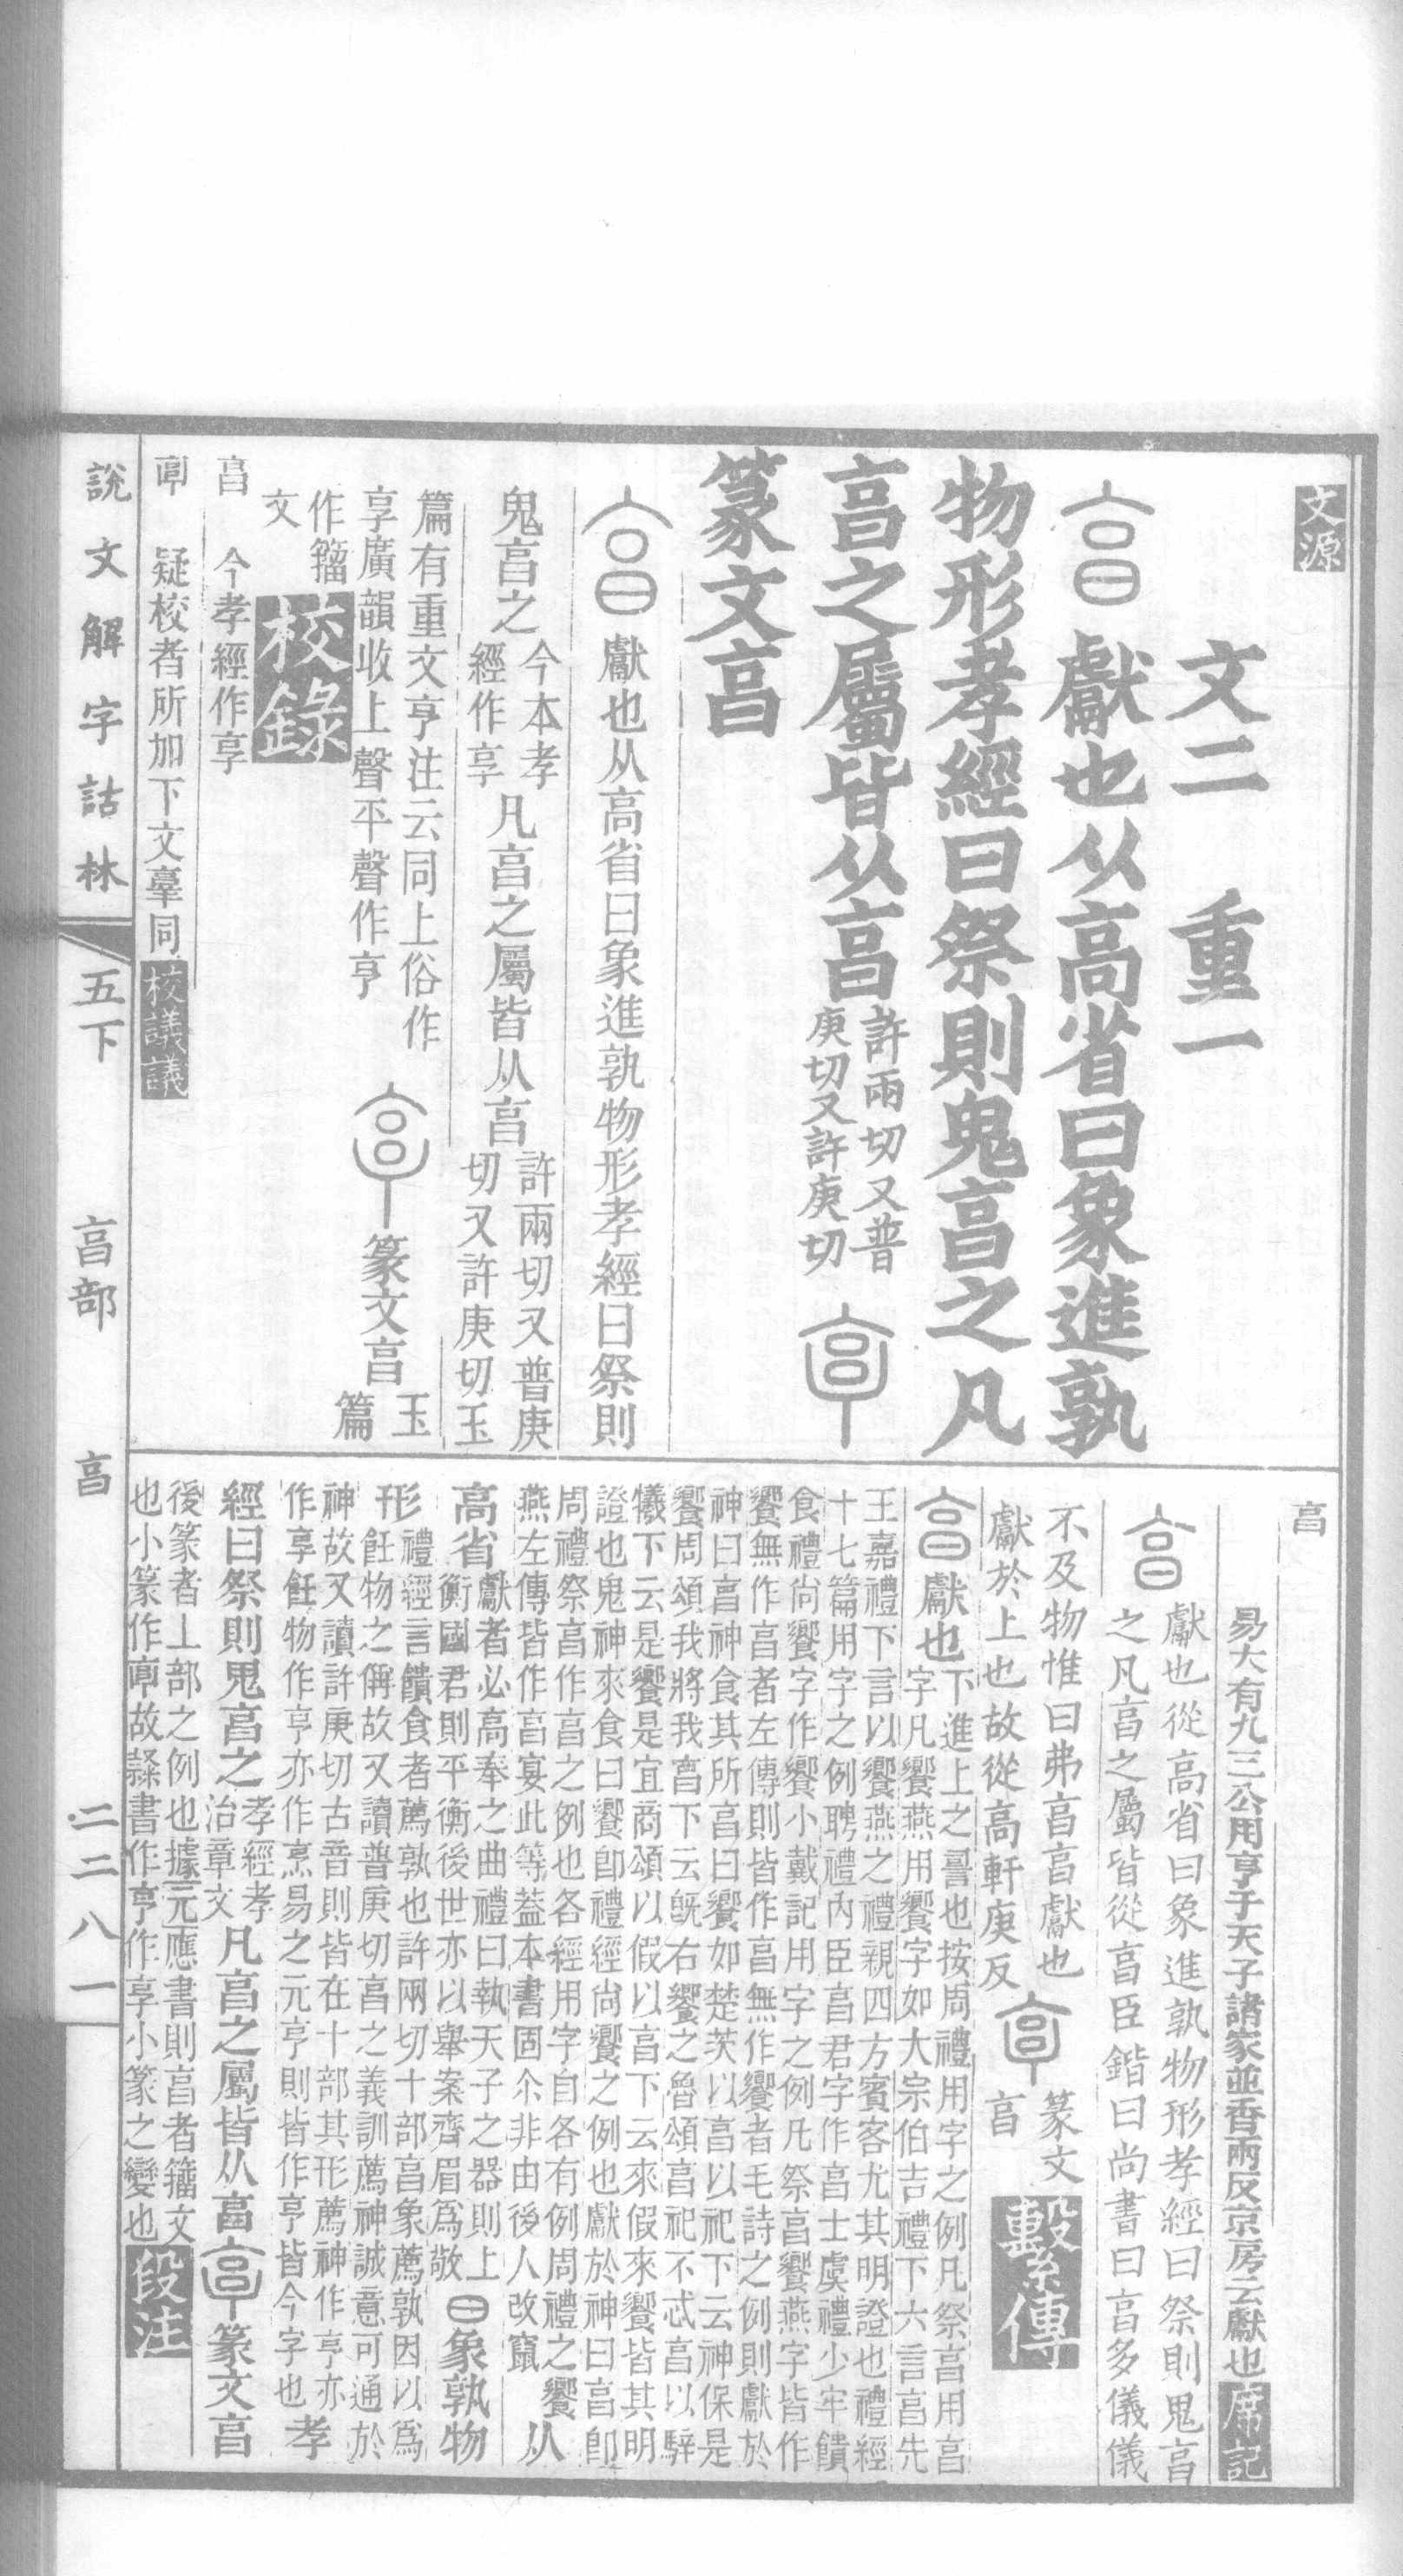 文源
文二　重一
獻也从高省曰象進孰
物形孝經曰祭則鬼亯之凡
亯之屬皆从亯許兩切又普
庚切又許庚切
篆文亯
獻也从高省曰象進孰物形孝經曰祭則
鬼亯之今本孝
經作享凡亯之屬皆从亯許兩切又普庚
切又許庚切玉
篇有重文亨注云同上俗作
享廣韻收上聲平聲作亨
篆文亯玉
篇
作籀
文校錄
亯　今孝經作享
亭　疑校者所加下文𦎫同校議議
亯　易大有九三公用亨于天子諸家並香兩反京房云獻也席記
獻也從高省曰象進孰物形孝經曰祭則鬼亯
之凡亯之屬皆從亯臣鍇曰尚書曰亯多儀儀
不及物惟曰弗亯亯獻也
獻於上也故從高軒庚反
篆文
亯繫傳
亯獻也下進上之䛐也按周禮用字之例凡祭亯用亯
字凡饗燕用饗字如大宗伯吉禮下六言亯先
王嘉禮下言以饗燕之禮親四方賓客尤其明證也禮經
十七篇用字之例聘禮內臣亯君字作亯士虞禮少牢饋
食禮尚饗字作饗小戴記用字之例凡祭亯饗燕字皆作
饗無作亯者左傳則皆作亯無作饗者毛詩之例則獻於
神曰亯神食其所亯曰饗如楚茨以亯以祀下云神保是
饗周頌我將我亯下云旣右饗之魯頌亯祀不忒亯以騂
犧下云是饗是宜商頌以假以亯下云來假來饗皆其明
證也鬼神來食曰饗卽禮經尙饗之例也獻於神曰亯卽
周禮祭亯作亯之例也各經用字自各有例周禮之饗
燕左傳皆作亯宴此等蓋本書固尒非由後人改竄从
高省獻者必高奉之曲禮曰執天子之器則上
衡國君則平衡後世亦以舉案齊眉爲敬曰象孰物
形禮經言饋食者薦孰也許兩切十部亯象薦孰因以爲
飪物之偁故又讀普庚切亯之義訓薦神誠意可通於
神故又讀許庚切古音則皆在十部其形薦神作亨亦
作享飪物作亨亦作烹易之元亨則皆作亨皆今字也孝
經曰祭則鬼亯之孝經孝
治章文凡亯之屬皆从亯篆文亯
後篆者上部之例也據元應書則亯者籀文
也小篆作亭故隸書作亨作享小篆之變也段注
說文解字詁林　五下　亯部　亯　二二八一